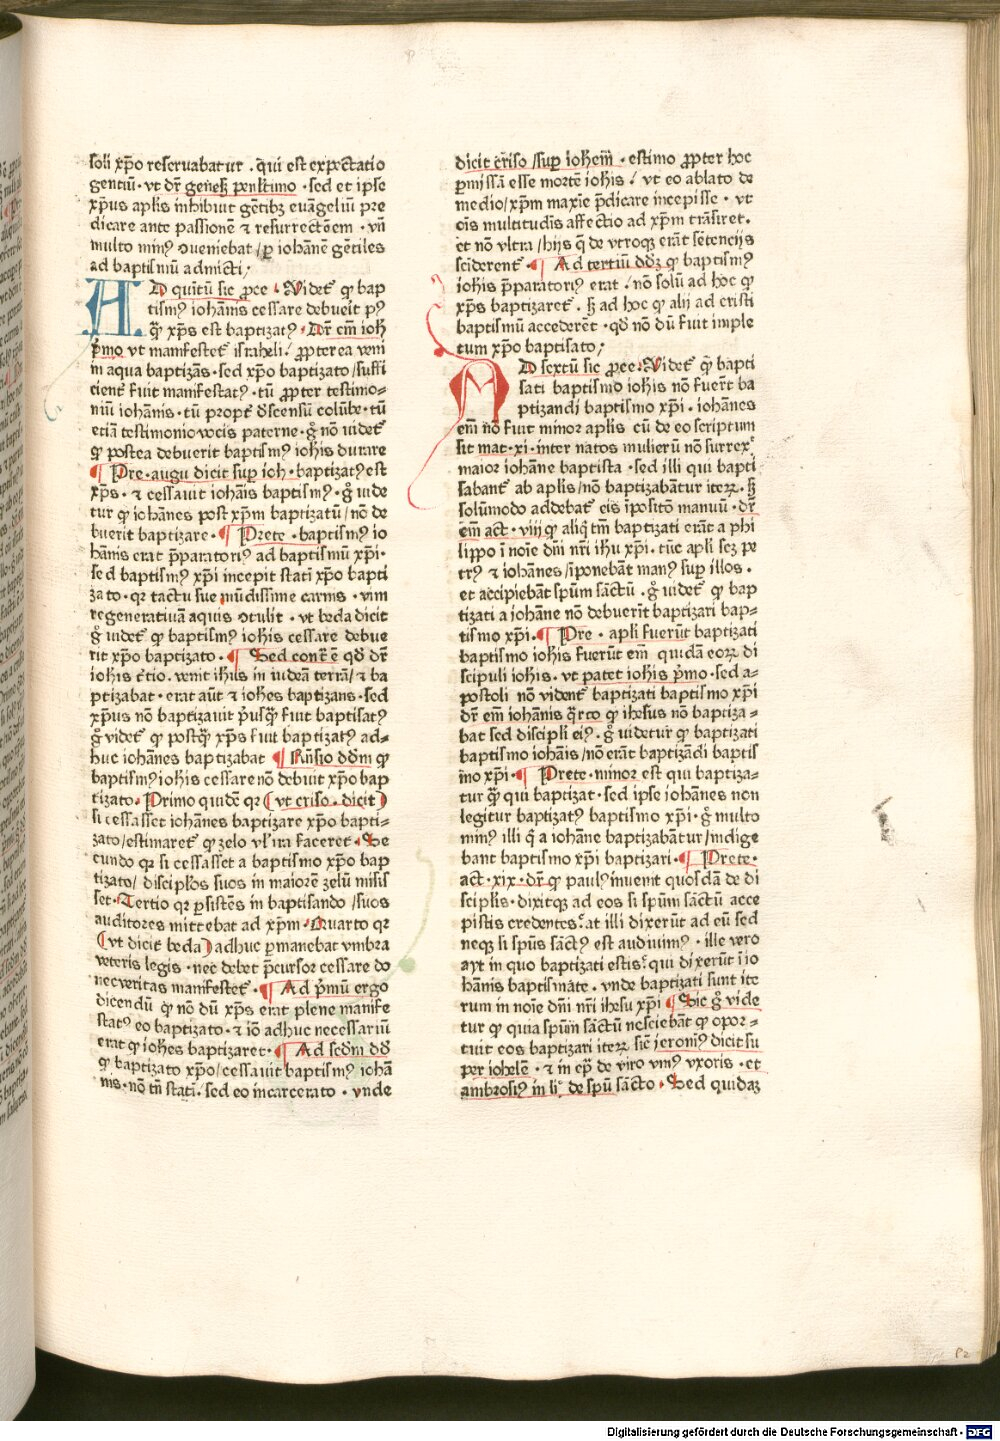 soli xp̄o reseruabatur . qui est expectatio
gentiū . vt dr̄ geneſ penl̄timo . sed et ipse
xp̄us aplis inhibuit gētibꝫ euāgeliū pre
dicare ante passionē ⁊ resurrectōem . vn̄
multo minꝰ ↄueniebat / ꝑ iohānē gētiles
ad baptismū admicti;
AD quītū sic ꝓce . Videt᷑ ꝙ bap
tismꝰ iohānis cessare debuerit pꝰ
ꝙ̄ xp̄s est baptizatꝰ . Dr̄ em̄ ioh̄
p̄mo vt manifestet᷑ israheli . ꝓpterea veni
in aqua baptizās . sed xp̄o baptizato / suffi
cient᷑ fuit manifestatꝰ . tū ꝓpter testimo-
niū iohānis . tū propt᷑ d̄scensū colūbe . tū
etiā testimonio vocis paterne . gͦ nō uidet᷑
ꝙ postea debuerit baptismꝰ ioh̄is durare
¶ Pre . augu dicit suꝑ ioh̄ . baptizatꝰ est
xp̄s . ⁊ cessauit iohānis baptismꝰ . gͦ uide
tur ꝙ iohānes post xp̄m baptizatū / nō de
buerit baptizare . ¶ Prete . baptismꝰ io
hānis erat p̄paratoriꝰ ad baptismū xp̄i .
sed baptismꝰ xp̄i incepit statī xp̄o bapti
zato . qꝛ tactu sue mūdissime carnis . vim
regeneratiuā aquis ↄtulit . vt beda dicit
gͦ uidet᷑ ꝙ baptismꝰ ioh̄is cessare debue
rit xp̄o baptizato . ¶ Sed contͣ ē qd̄ dr̄
ioh̄is t͛tio . venit ih̄us in iudeā terrā / ⁊ ba
ptizabat . erat aūt ⁊ ioh̄es baptizans . sed
xp̄us nō baptizauit p̄usꝙ̄ fuit baptisatꝰ
gͦ videt᷑ ꝙ postꝙ̄ xp̄s fuit baptizatꝰ ad-
huc iohānes baptizabat ¶ Rn̄sio dd̄m ꝙ
baptismꝰ ioh̄is cessare nō debuit xp̄o bap
tizato . Primo quidē qꝛ ( vt criso . dicit )
si cessasset iohānes baptizare xp̄o bapti-
zato / estimaret᷑ ꝙ zelo vl᷑ ira faceret . Se
cundo qꝛ si cessasset a baptismo xp̄o bap
tizato / discipl̄os suos in maiorē zelū misis
set . Tertio qꝛ ꝑsistēs in baptisando / suos
auditores mittebat ad xp̄m . Quarto qꝛ
( vt dicit beda ) adhuc ꝑmanebat vmbra
veteris legis . nec debet p̄cursor cessare do
nec veritas manifestet᷑ . ¶ Ad p̄mū ergo
dicendū ꝙ nō dū xp̄s erat plene manife
statꝰ eo baptizato . ⁊ iō adhuc necessariū
erat ꝙ ioh̄es baptizaret . ¶ Ad scd̄m dd̄
ꝙ baptizato xp̄o / cessauit baptismꝰ iohā
nis . nō tn̄ statī . sed eo incarcerato . vnde
dicit criso ssuꝑ ioh̄em̄ . estimo ꝓpter hoc
ꝑmissā esse mortē ioh̄is / vt eo ablato de
medio / xp̄m maxīe p̄dicare incepisse . vt
oīs multitudīs affectio ad xp̄m trāsiret .
et nō vltra / hijs q̄ de vtroqꝫ erāt sētencijs
scīderent᷑ . ¶ Ad tertiū dd̄ꝫ ꝙ baptismꝰ
ioh̄is p̄paratoriꝰ erat . nō solū ad hoc ꝙ
xp̄s baptizaret᷑ . sꝫ ad hoc ꝙ alij ad cristi
baptismū accederēt . qd̄ nō dū fuit imple
tum xp̄o baptisato;
AD sextū sic ꝓce . Videt᷑ ꝙ bapti
sati baptismo ioh̄is nō fuer̄t ba
ptizandi baptismo xp̄i . iohānes
em̄ nō fuit minor aplis cū de eo scriptum
sit mat . xi . inter natos mulierū nō surrex᷑
maior iohāne baptista . sed illi qui bapti
sabant᷑ ab aplis / nō baptizabātur iteꝝ . sꝫ
solūmodo addebat᷑ eis īpositō manuū . dr̄
em̄ act . viij ꝙ aliq̇ tm̄ baptizati erāt a phi
lippo ī noīe dn̄i nr̄i ih̄u xp̄i . tūc apli scꝫ pe
trꝰ ⁊ iohānes / īponebāt manꝰ suꝑ illos .
et accipiebāt spūm sāctū . gͦ uidet᷑ ꝙ bap
tizati a iohāne nō debuerīt baptizari bap-
tismo xp̄i . ¶ Pre . apli fuerūt baptizati
baptismo ioh̄is fuerūt em̄ quidā eoꝝ di
scipuli ioh̄is . vt patet ioh̄is p̄mo . sed a-
postoli nō vident᷑ baptizati baptismo xp̄i
dr̄ em̄ iohānis q̄rto ꝙ ihesus nō baptiza-
bat sed discipli eiꝰ . gͦ uidetur ꝙ baptizati
baptismo iohāis / nō erāt baptizādi baptis
mo xp̄i . ¶ Prete . minor est qui baptiza-
tur ꝙ̄ qui baptizat . sed ipse iohānes non
legitur baptizatꝰ baptismo xp̄i . gͦ multo
minꝰ illi q̇ a iohāne baptizabātur / indige
bant baptismo xp̄i baptizari . ¶ Prete .
act . xix . dr̄ ꝙ paulꝰ inuenit quosdā de di
sciplis . dixitqꝫ ad eos si spūm sāctū acce
pistis credentes . at illi dixerūt ad eū sed
neqꝫ si spūs sāctꝰ est audiuimꝰ . ille vero
ayt in quo baptizati estis . qui dixerūt ī io
hānis baptismate . vnde baptizati sunt ite
rum in noīe dn̄i nr̄i ih̄esu xp̄i ¶ Sic gͦ vide
tur ꝙ quia spūm sāctū nesciebāt ꝙ opor-
tuit eos baptizari iteꝝ sic̄ ieronimꝰ dicit su
per iohelē . ⁊ in ep̄ de viro vniꝰ vxoris . et
ambrosiꝰ in li᷑ de spū sācto . Sed quidaꝫ
82
Digitalisierung gefördert durch die Deutsche Forschungsgemeinschaft - DFG